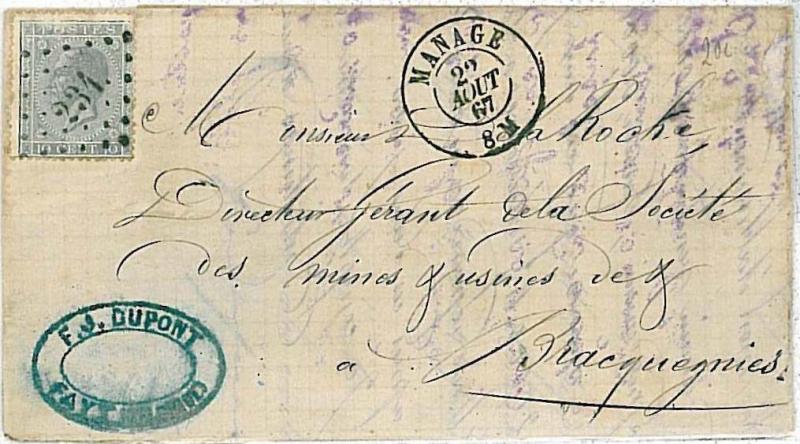 POSTES
234
10 CENT 10
MANAGE
22
AOUT
67
8M
20c
Monsieur de la Roche,
Directeur Gérant de la Société
des mines & usines de &
à Bracquegnies
F.J. DUPONT
FAYT